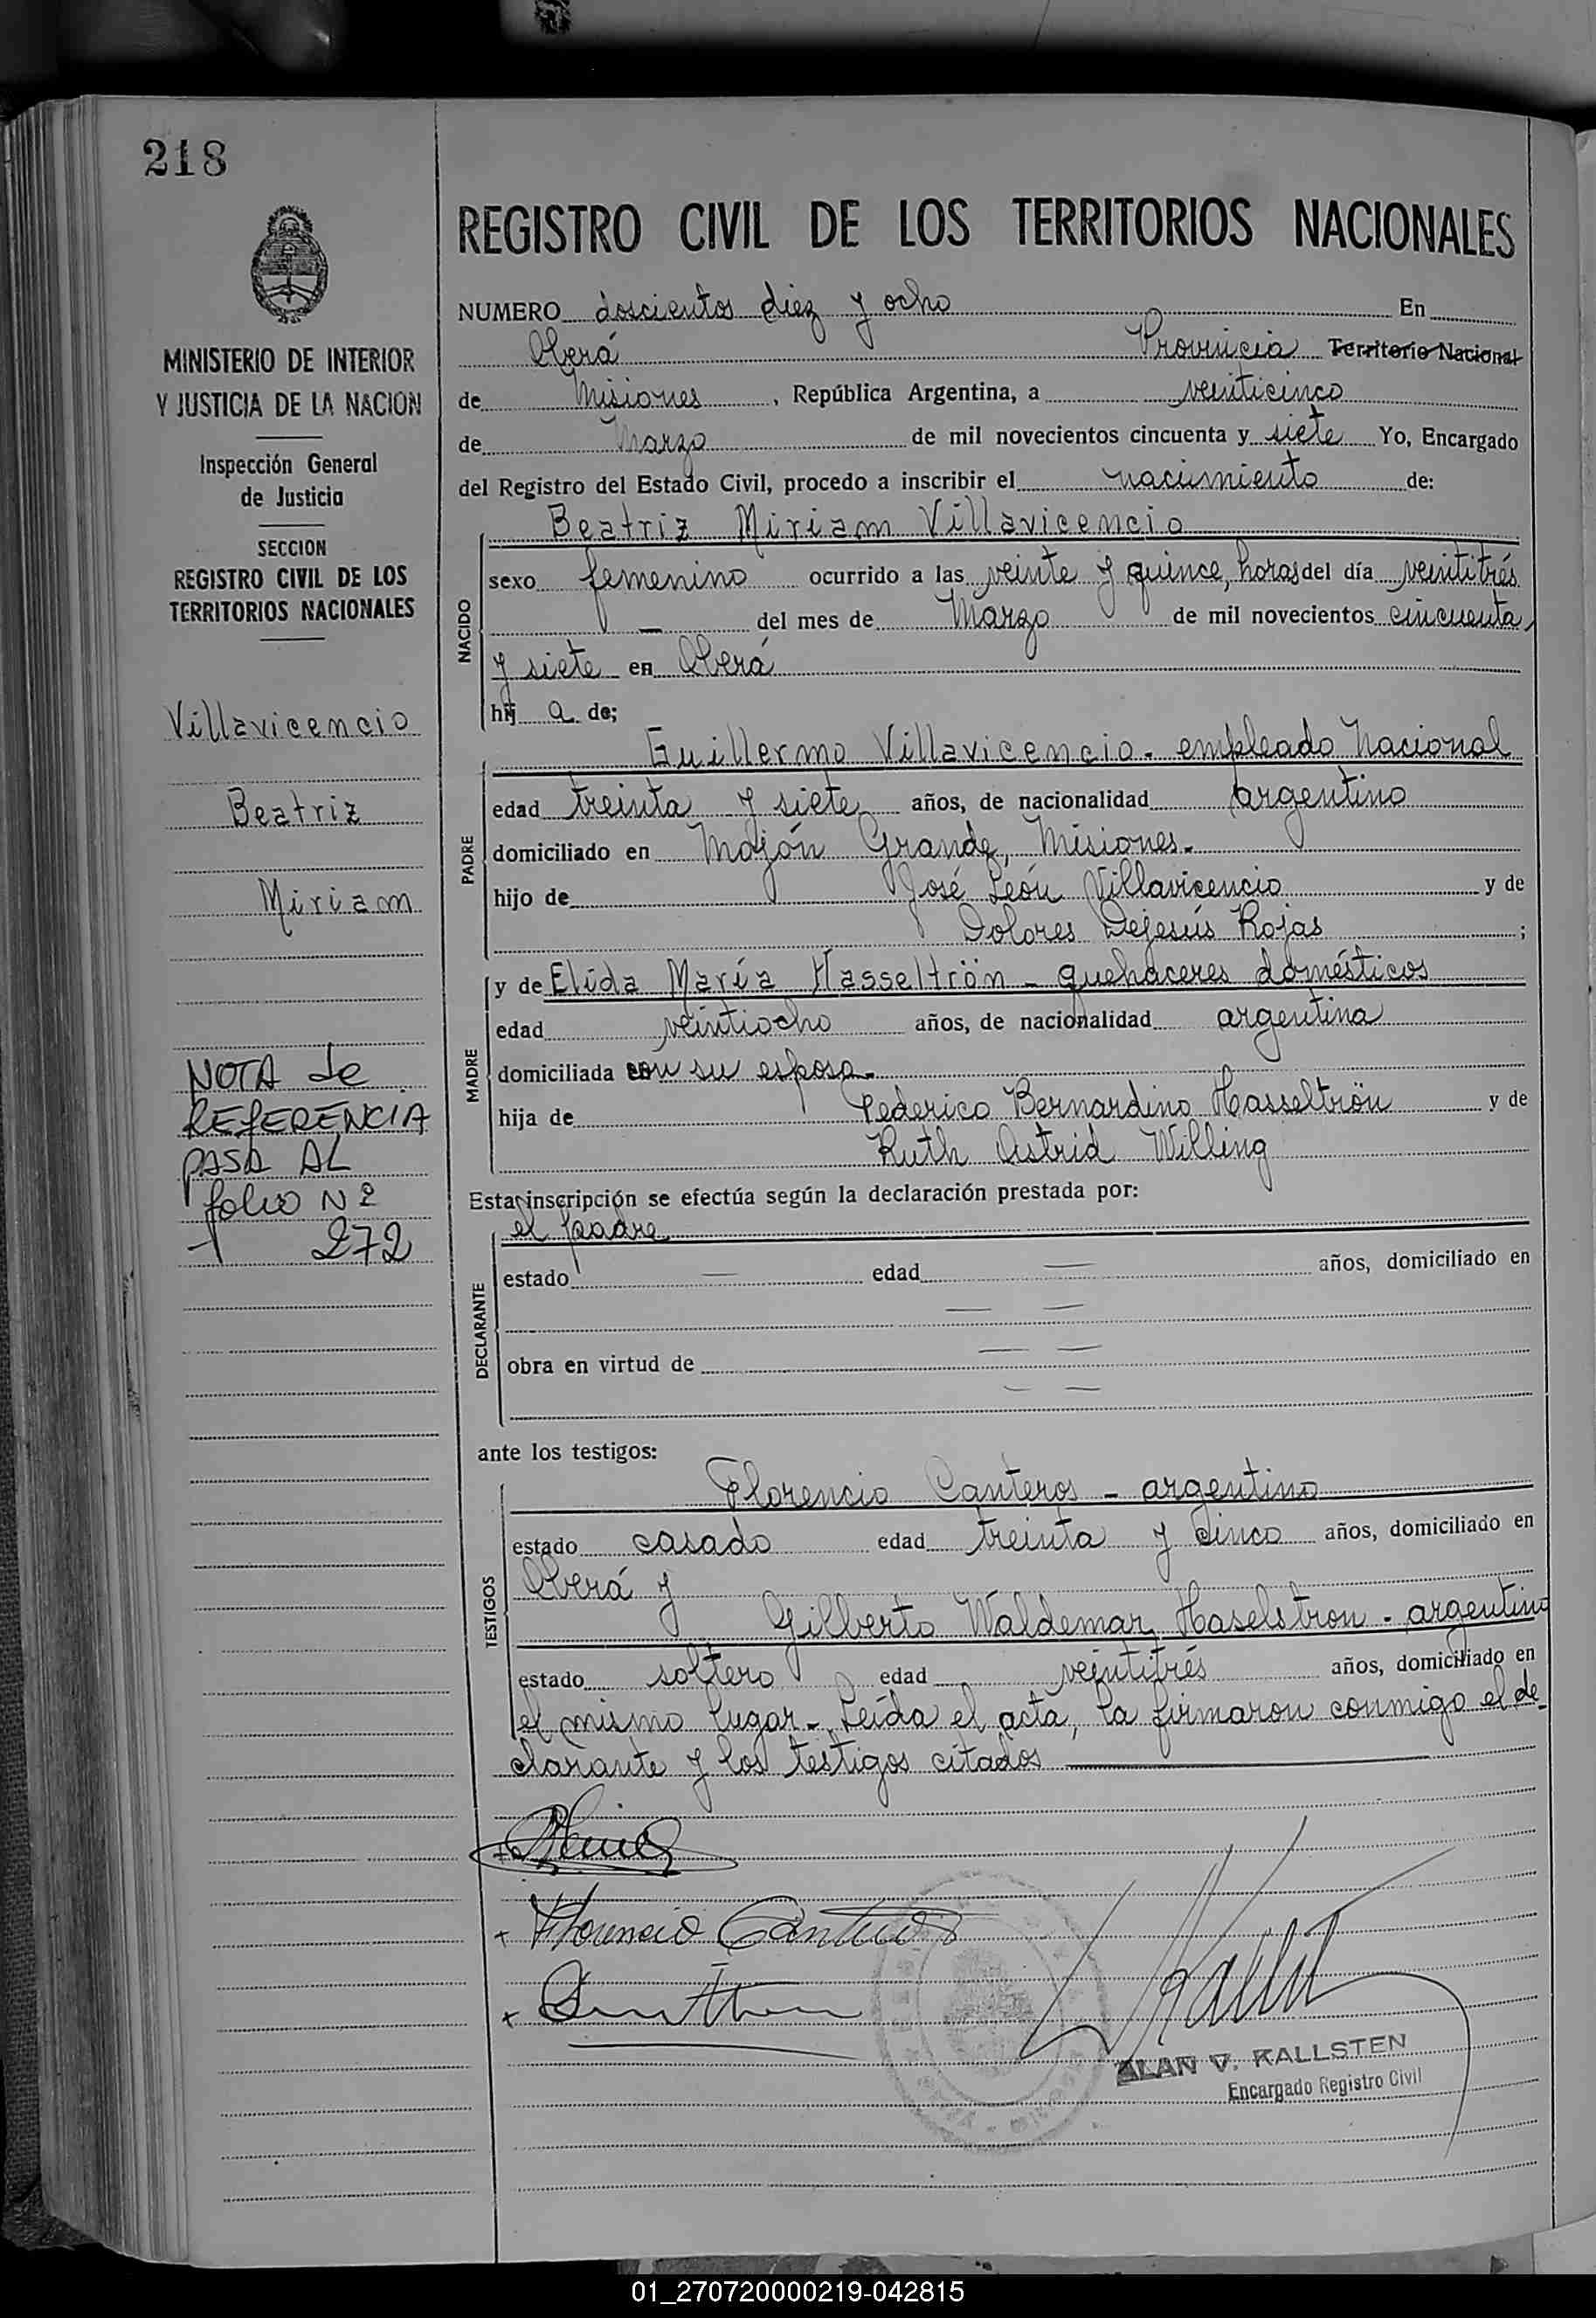 218
MINISTERIO DE INTERIOR
Y JUSTICIA DE LA NACION
Inspección General
de Justicia
SECCION
REGISTRO CIVIL DE LOS
TERRITORIOS NACIONALES
Villavicencio
Beatriz
Miriam
NOTA de
REFERENCIA
PASA AL
folio Nº
272
REGISTRO CIVIL DE LOS TERRITORIOS NACIONALES
NUMERO doscientos diez y ocho En
Oberá Provincia Territorio Nacional
de Misiones, República Argentina, a veinticinco
de Marzo de mil novecientos cincuenta y siete Yo, Encargado
del Registro del Estado Civil, procedo a inscribir el nacimiento de:
Beatriz Miriam Villavicencio
NACIDO
sexo femenino ocurrido a las veinte y quince, horas del día veintitrés
— del mes de Marzo de mil novecientos cincuenta
y siete en Oberá
hij a de;
Guillermo Villavicencio - empleado Nacional
PADRE
edad treinta y siete años, de nacionalidad argentino
domiciliado en Mojón Grande, Misiones.
hijo de José León Villavicencio y de
Dolores Dejesús Rojas ;
y de Elida María Hasseltrön - quehaceres domésticos
MADRE
edad veintiocho años, de nacionalidad argentina
domiciliada con su esposo.
hija de Federico Bernardino Hasseltrön y de
Ruth Astrid Willing
Esta inscripción se efectúa según la declaración prestada por:
el padre
DECLARANTE
estado — edad — años, domiciliado en
— —
obra en virtud de — —
— —
ante los testigos:
Florencio Canteros - argentino
TESTIGOS
estado casado edad treinta y cinco años, domiciliado en
Oberá y
Gilberto Waldemar Haselstron - argentino
estado soltero edad veintitrés años, domiciliado en
el mismo lugar - Leída el acta, la firmaron conmigo el de-
clarante y los testigos citados
Florencio Canteros
ALAN V. KALLSTEN
Encargado Registro Civil
01_270720000219-042815